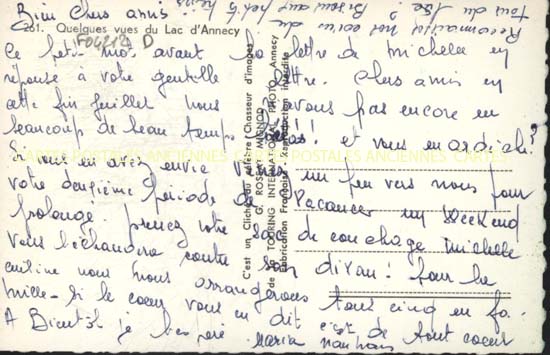 Bien Chers amis
Reconnaissez nos coins du
tour du lac ? Bisous aux petits
261. Quelques vues du Lac d'Annecy
F04212 D
Ce petit mot avant la lettre de Michel en
réponse à votre gentille lettre. Chers amis en
cette fin juillet nous n'avons pas encore eu
beaucoup de beau temps hélas!! et vous en ardèche?
Si vous en avez envie venez un peu vers nous pour
votre deuxième période de vacances un weekend
prolongé! prenez votre sac de couchage michelle
vous échangera contre son divan! pour la
cuisine nous nous arrangerons tous cinq en fa-
mille- Si le coeur vous en dit c'est de tout coeur
A Bientôt je l'espère Maria
C'est un Cliché du célèbre "Chasseur d'images"
G. ROSSAT-MIGNOD
de La TOURING INTERNATIONAL PHOTO, Annecy
Fabrication Française - Reproduction interdite
CARTES POSTALES ANCIENNES